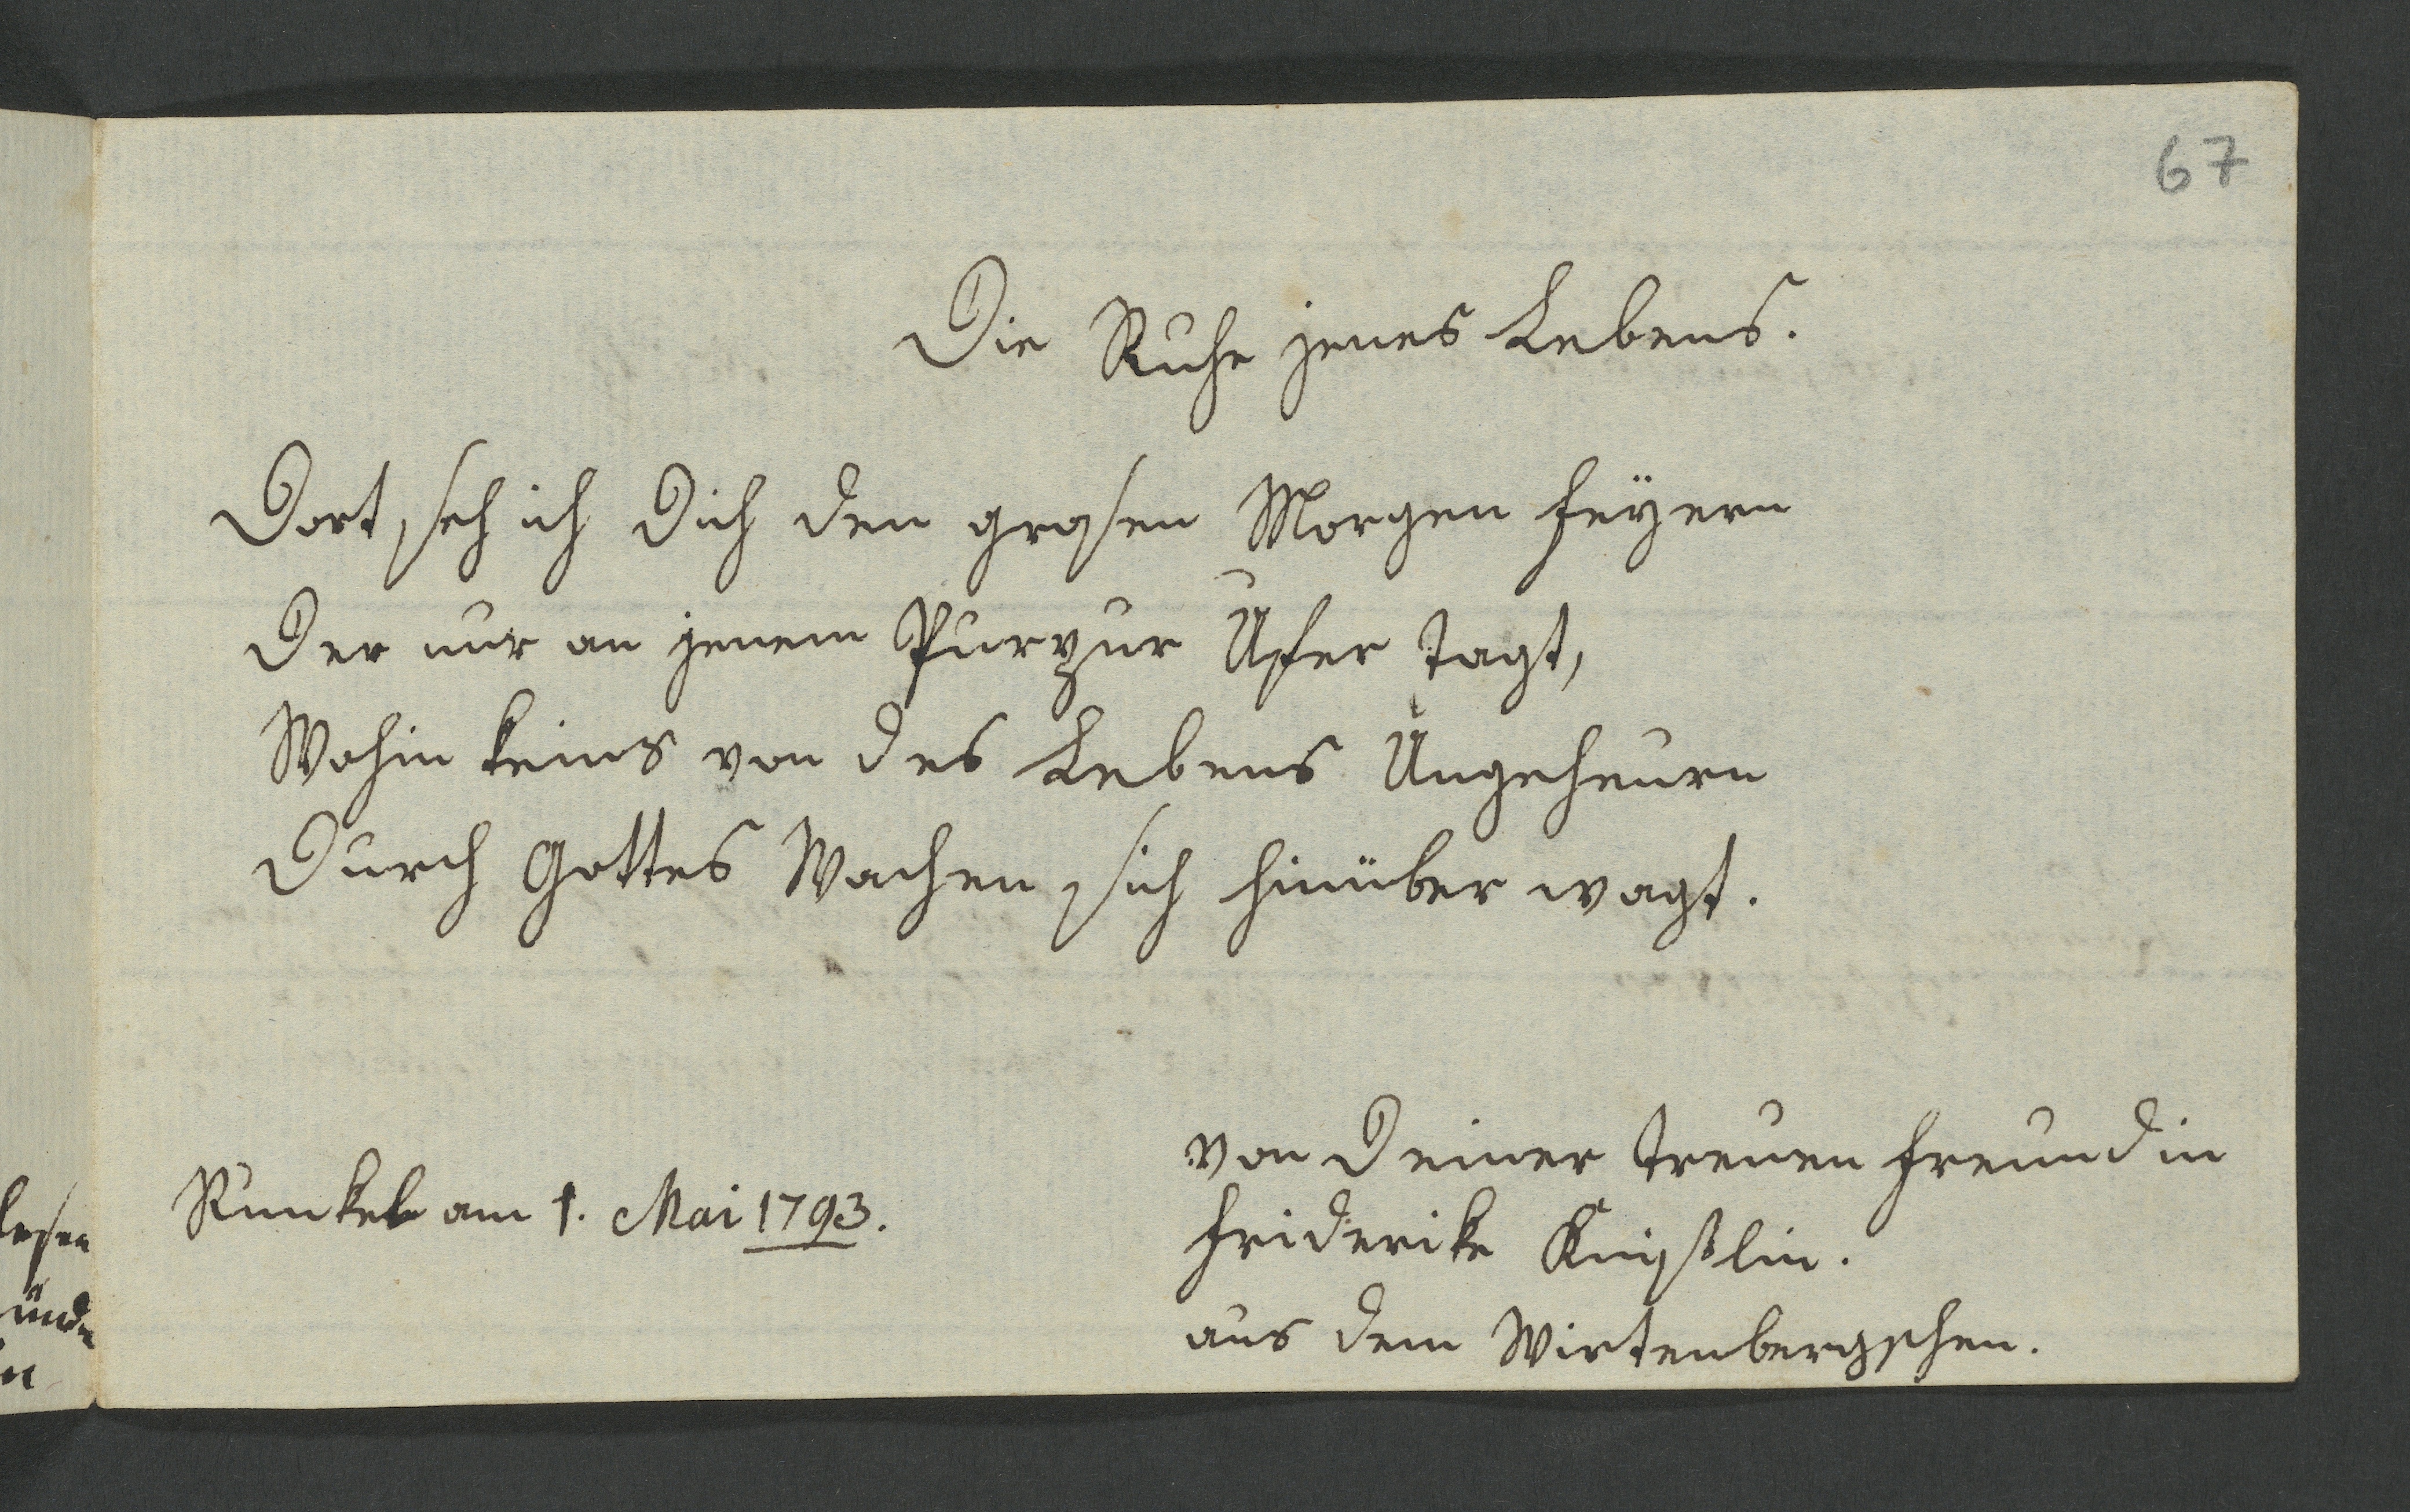 67
Die Ruhe jenes Lebens.
Dort, seh ich Dich den grosen Morgen feÿern
Der nur an jenem Purpur Ufer tagt,
Wohin keins von des Lebens Ungeheurn
Durch Gottes Wachen sich hinüber wagt.
von Deiner treuen Freundin
Runkel am 1. Mai 1793.
Friderike
aus dem Wirtenbergschen.